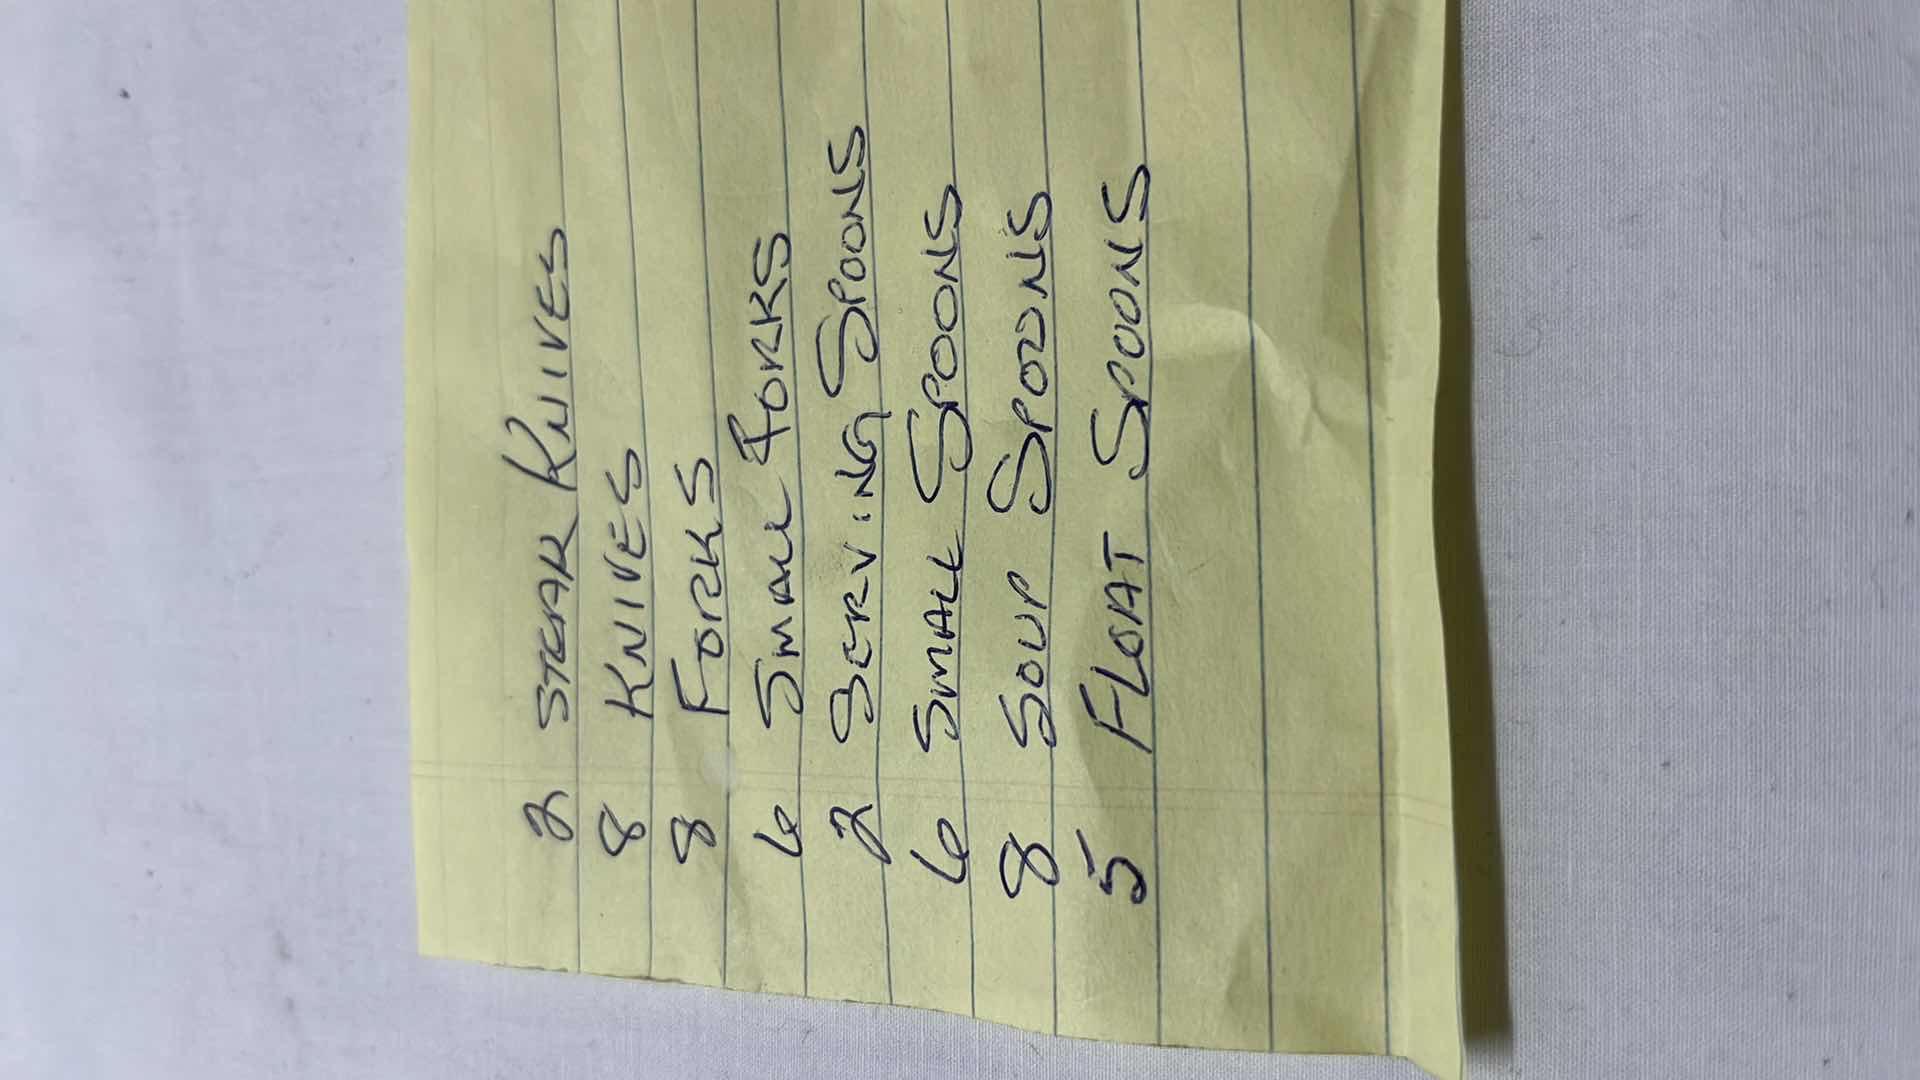 2 STEAK KNIVES
8 KNIVES
8 FORKS
6 SMALL FORKS
2 SERVING SPOONS
6 SMALL SPOONS
8 SOUP SPOONS
5 FLOAT SPOONS